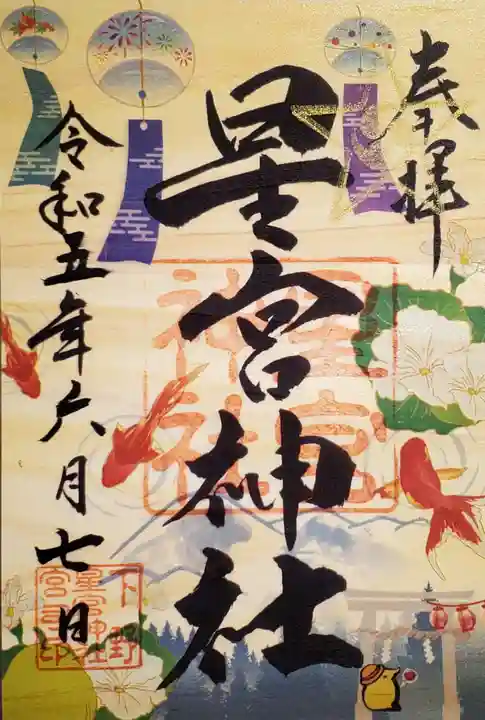 奉拝
星宮神社
星宮
神社
令和五年六月七日
下野
星宮神社
宮司印